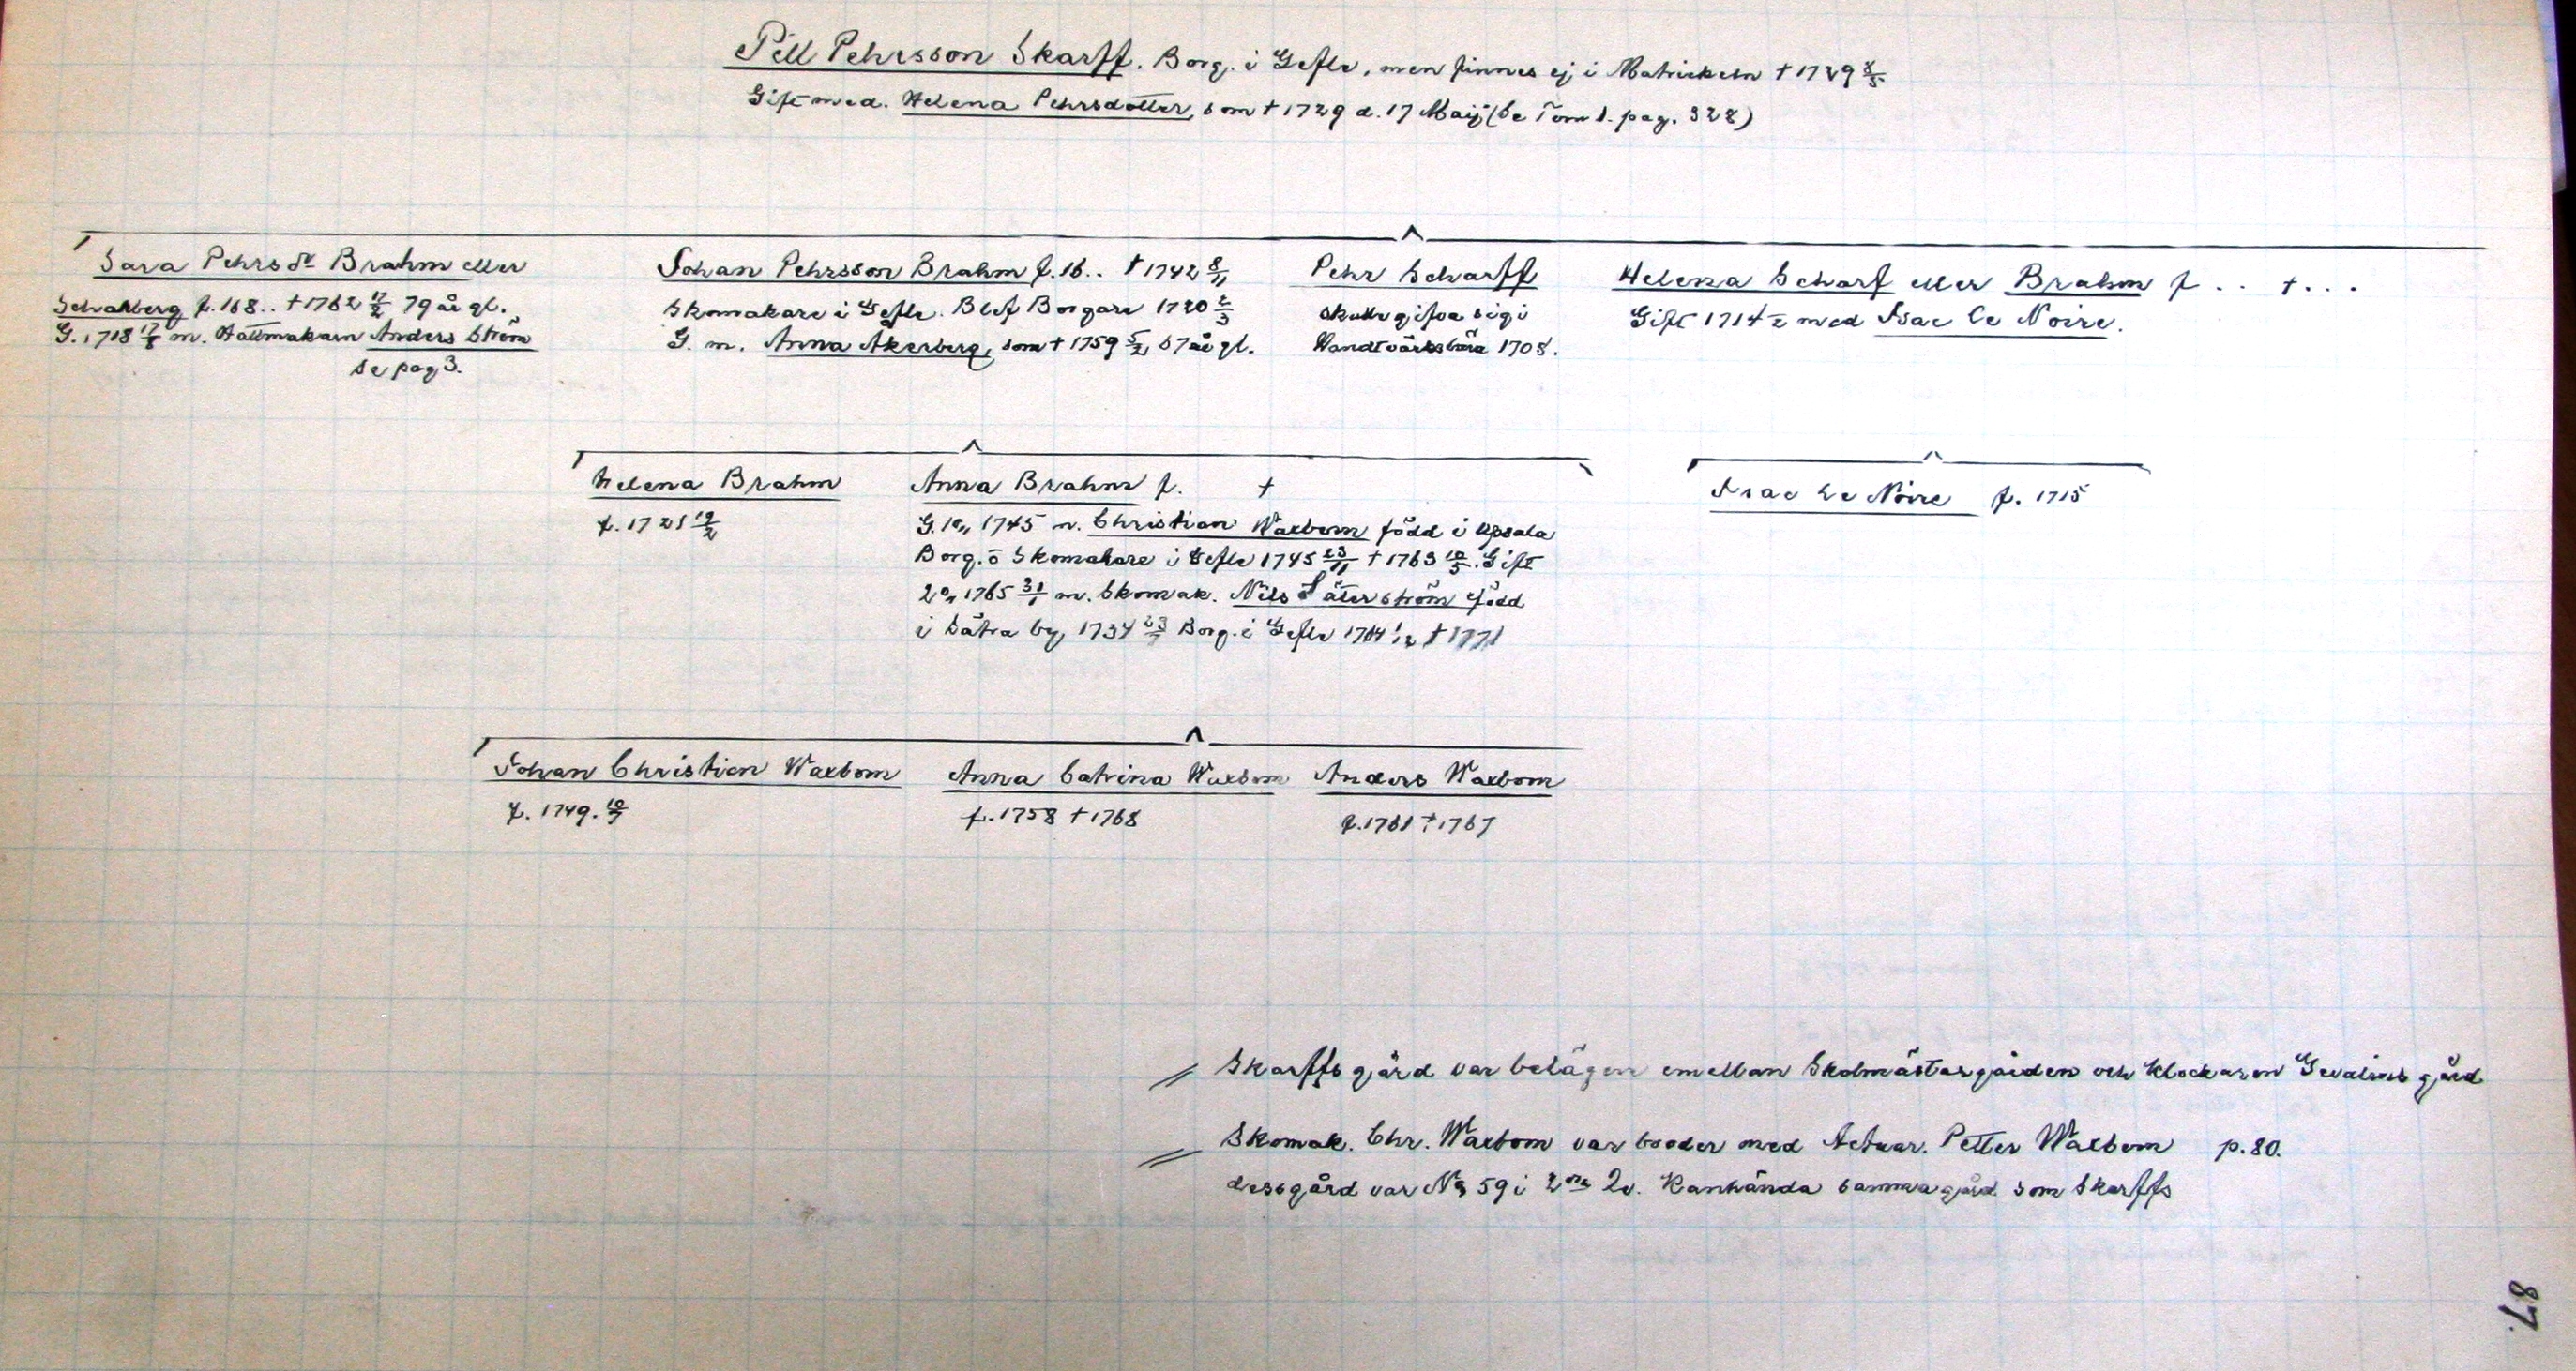 Pell Pehrsson Skarff. Borg. i Gefle, men finnes ej i Matrickeln † 1729 8/5
Gift med. Helena Pehrsdotter, som † 1729 d. 17 Maij (Se Tom 1. pag. 328)
Sara Pehrs dr Brahm eller
f. 168.. † 1762 17/2 79 år gl.
G. 1718 m. Hattmakarn Anders Ström
se pag 3.
Johan Pehrsson Brahm f. 16.. † 1742 8/11
Skomakare i Gefle. Blef Borgare 1720 2/3
G. m. Anna Åkerberg, som † 1759 5/2 57 år gl.
Pehr Scharff
skulle gifva sig i
1708.
Helena Scharf eller Brahm f .. †...
Gift 1714 med Isac Le Noire.
Helena Brahm
f. 1721 19/2
Anna Brahm f. †
G. 1o,, 1745 m. Christian Waxbom född i Upsala
Borg. o Skomakare i Gefle 1745 23/11 † 1763 10/5. Gift
2o,, 1765 31/1 m. Skomak. Nils Säterström född
i Sätra by, 1734 23/7 Borg. i Gefle 1764 1/12 † 1771
Isac Le Noire f. 1715
Johan Christian Waxbom
f. 1749. 10/7
Anna Catrina Waxbom
f. 1758 † 1768
Anders Waxbom
f. 1761 † 1767
// Skarffs gård var belägen emellan Skolmästargården och Klockaren Gevalius gård
// Skomak. Chr. Waxbom var broder med Actuar. Petter Waxbom p. 80.
dess gård var No 59 i 2dra Qv. Kanhända samma gård som Skarffs
87.